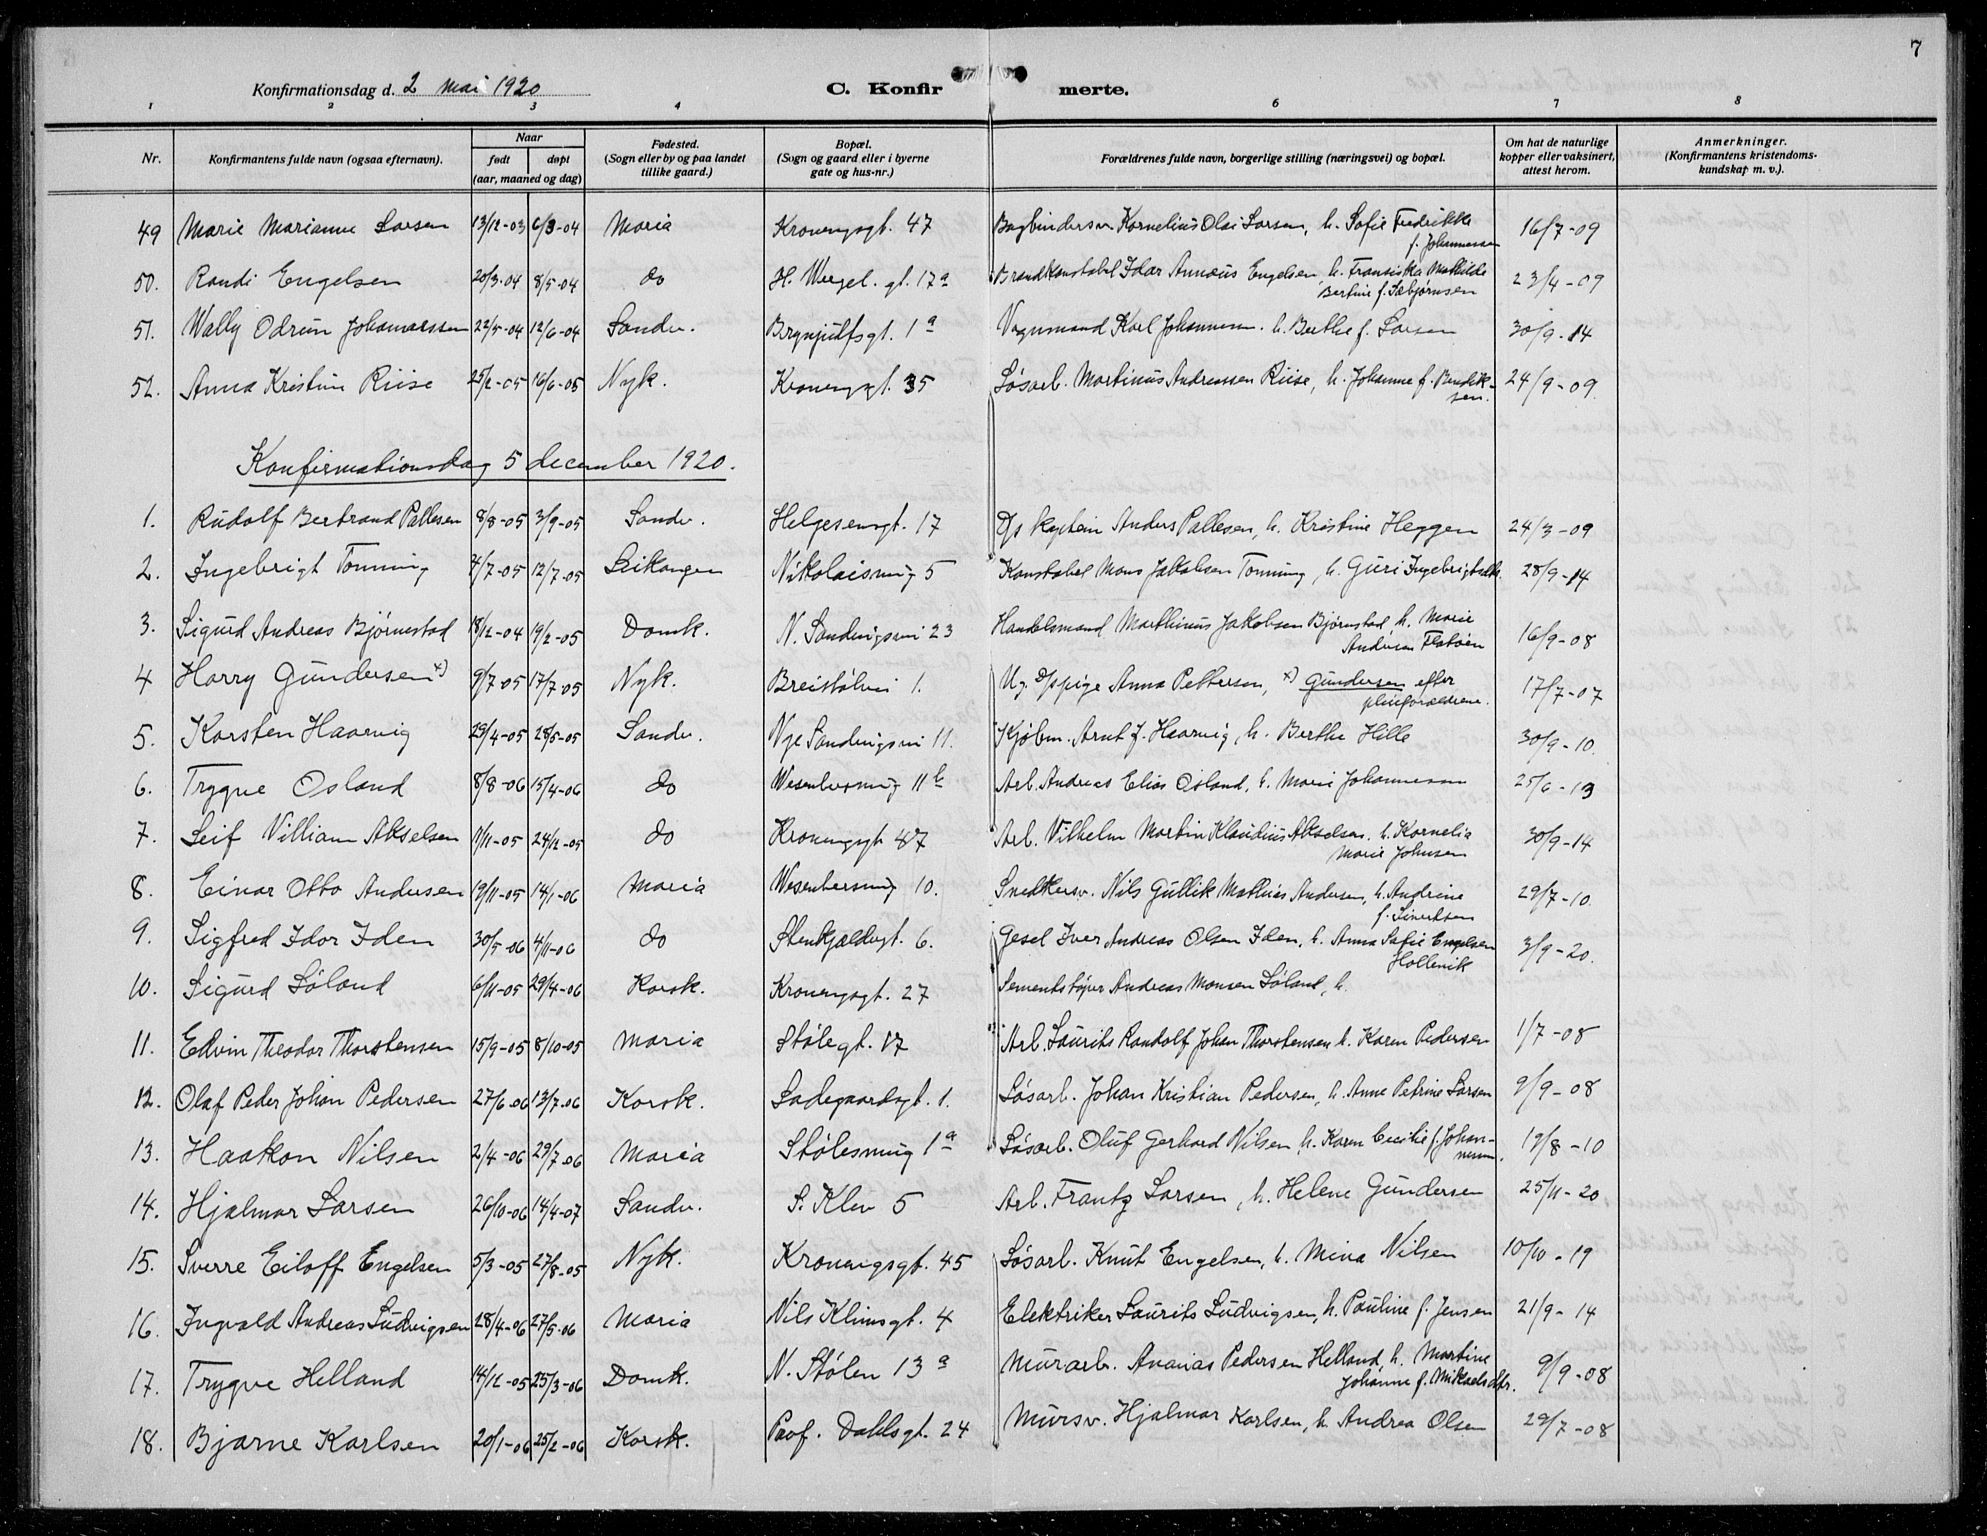 7
Konfirmationsdag d. 2 mai 1920
C. Konfir merte.
1 2 3 4 6 7 8
Nr. Konfirmantens fulde navn (ogsaa efternavn). Naar født døpt (aar, maaned og dag) Fødested. (Sogn eller by og paa landet tillike gaard.) Bopæl. (Sogn og gaard eller i byerne gate og hus-nr.) Forældrenes fulde navn, borgerlige stilling (næringsvei) og bopæl. Om hat de naturlige kopper eller vaksinert, attest herom. Anmerkninger. (Konfirmantens kristendoms-kundskap m. v.).
49 Marie Marianne Larsen 13/12-03 6/3-04 Maria Kronengsgt. 47 Kornelius Olai Larsen, h. Sofie Fredrikke f. Johannessen 16/7-09
50. Randi Engelsen 20/3-04 8/5-04 do H. Wergel. gt. 17a Brandkonstabel Idar Annæus Engelsen h. Fransiska Mathilde Bertine f. Sæbjørnsen 23/4-09
51. Wally Odrun Johannessen 22/5-04 12/6-04 Sandv. Brynjulfsgt. 1a Vognmand Karl Johannessen. h. Berthe f. Larsen 30/9-14
52. Anna Kristine Riise 25/2-05 16/6-05 Nyk. Kronengsgt. 35 Løsarb. Martinus Andreassen Riise, h. Johanne f. Bendiksen. 24/9-09
Konfirmationsdag 5 december 1920.
1. Rudolf Bertrand Pallesen 8/8-05 3/9-05 Sandv. Helgesensgt. 17 D/s kaptein Anders Pallesen, h. Kristine Heggen 24/3-09
2. Ingebrigt Tonning 4/7-05 12/7-05 Leikanger Nikolaismug 5 Konstabel Mons Jakobsen Tonning, h. Guri Ingebrigtsdtr. 28/9-14
3. Sigurd Andreas Bjørnestad 18/12-04 19/2-05 Domk. N. Sandvigsvei 23 Handelsmand Marthinus Jakobsen Bjørnstad h. Marie 16/9-08
4 Harry Gundersen x) 9/7-05 17/7-05 Nyk. Breistølvei 1. Ug. Tjpige Anna Pettersen, x) Gundersen efter pleieforældrene. 17/7-07
5. Karsten Haarvig 29/4-05 28/5-05 Sandv. Nye Sandvigsvei 11. Kjøbm. Arnt J. Haarvig, h. Berthe Hille 30/9-10.
6. Trygve Osland 8/8-06 15/4-06 do Wesenbersmug 11b Arb. Andreas Elias Osland, h. Marie Johannessen 25/6-13
7. Leif Villiam Akselsen 11/11-05 24/12-05 do Kronengsgt 47 Arb. Vilhelm Martin Klaudius Akselsen. h. Kornelia Marie Johnsen 30/9-14
8. Einar Otto Andersen 19/11-05 14/1-06 Maria Wesenbersmug 10. Snedkersv. Nils Gullik Mathias Andersen, h. Andrine f. Sivertsen 29/7-10.
9. Sigfred Idor Iden 30/5-06 4/11-06 do Stenkjeldergt. 6. Gesel Iver Andreas Olsen Iden, h. Anna Sofie Engelsen Hollevik 3/9-20.
10. Sigurd Søland 6/11-05 29/4-06 Korsk. Kronengsgt. 27 Sementstøper Andreas Monsen Søland, h.
11. Edvin Theodor Thorstensen 15/9-05 8/10-05 Maria Stølegt. 17 Arb. Laurits Randolf Johan Thorstensen h. Karen Pedersen 1/7-08
12. Olaf Peder Johan Pedersen 27/6-06 13/7-06 Korsk. Ladegaardsgt. 1. Løsarb. Johan Kristian Pedersen, h. Anne Petrine Larsen 9/9-08
13. Haakon Nilsen 2/4-06 29/7-06 Maria Stølesmug 1a Løsarb. Oluf Gerhard Nilsen, h. Karen Cecilie f. Johannessen. 19/8-10
14. Hjalmar Larsen 26/10-06 14/4-07 Sandv. S. Klev 5 Arb. Frantz Larsen, h. Helene Gundersen 25/11-20
15. Sverre Eiloff Engelsen 5/3-05 27/8-05 Nyk. Kronengsgt. 45 Løsarb. Knut Engelsen, h. Mina Nilsen 10/10-19
16. Ingvald Andreas Ludvigsen 28/4-06 27/5-06 Maria Nils Klimsgt. 4 Elektriker Laurits Ludvigsen, h. Pauline f. Jensen 21/9-14
17. Trygve Helland 14/12-05 25/3-06 Domk. N. Stølen 13a Murarb. Ananias Pedersen Helland, h. Martine Johanne f. Mikaelsdtr. 9/9-08
18. Bjarne Karlsen 20/1-06 25/2-06 Korsk. Prof. Dahlsgt. 24 Mursv. Hjalmar Karlsen, h. Andrea Olsen 29/7-08